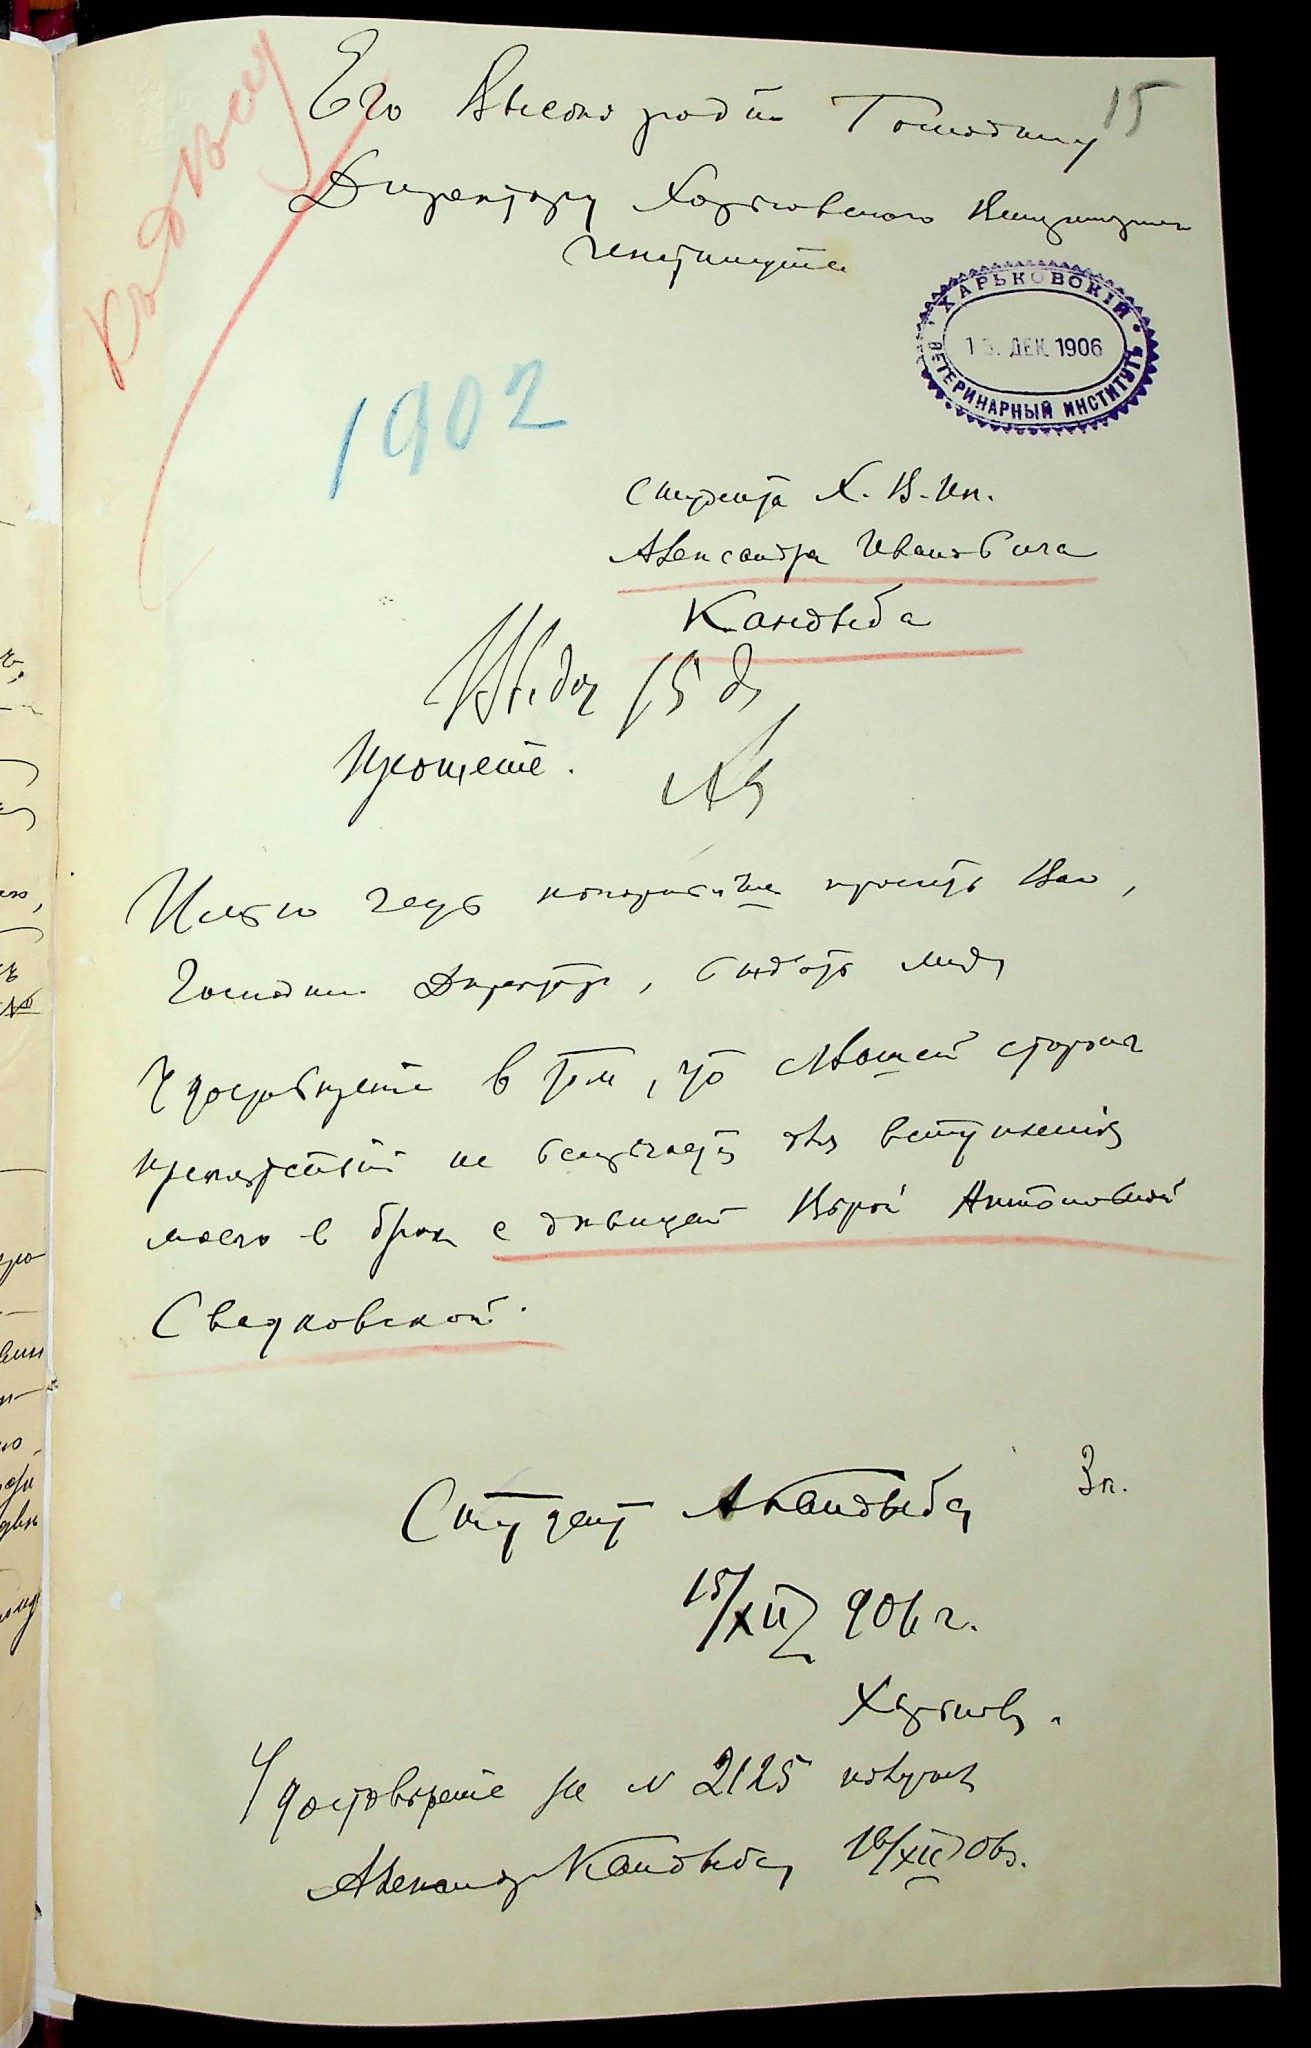 15
Его Высокородію Господину
Директору Харьковскаго Ветеринарн.
Института
Къ дѣлу
ХАРЬКОВСКІЙ
ДЕК. 1906
ВЕТЕРИНАРНЫЙ ИНСТИТУТЪ
1902
Студента Х. В. Ин.
Александра Ивановича
Кандыба
15
Прошеніе.
Имѣю честь покорнѣйше просить Вас,
Господин Директор, выдать мнѣ
Удостовѣреніе в том, что с Вашей стороны
препятствій не встрѣчается для вступленія
моего в брак с дѣвицей Вѣрой Антоновной
Свадковской.
Студент А Кандыба
3 к.
15/XII 906 г.
Харьков.
Удостовѣреніе за N 2125 получил
Александр Кандыба 16/XII 06 г.